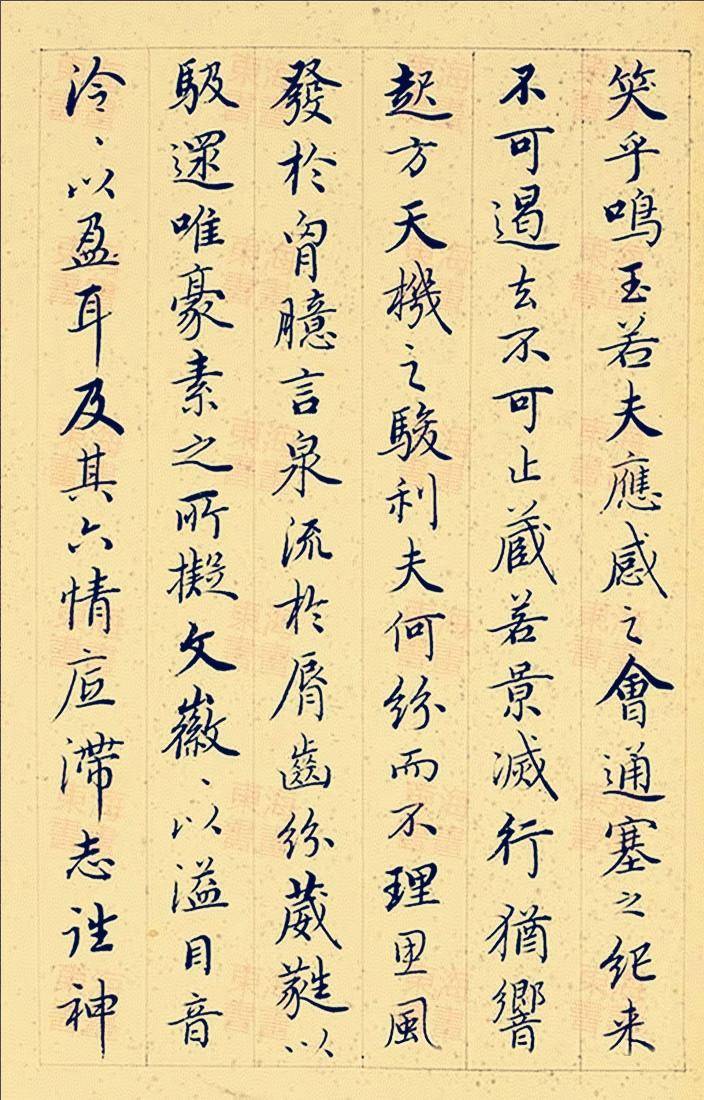 笑乎鳴玉若夫應感之會通塞之紀来
不可遏去不可止藏若景滅行猶響
起方天機之駿利夫何紛而不理思風
發於胷臆言泉流於脣齒紛葳蕤以
馺遝唯豪素之所擬文徽、以溢目音
泠、以盈耳及其六情底滯志往神